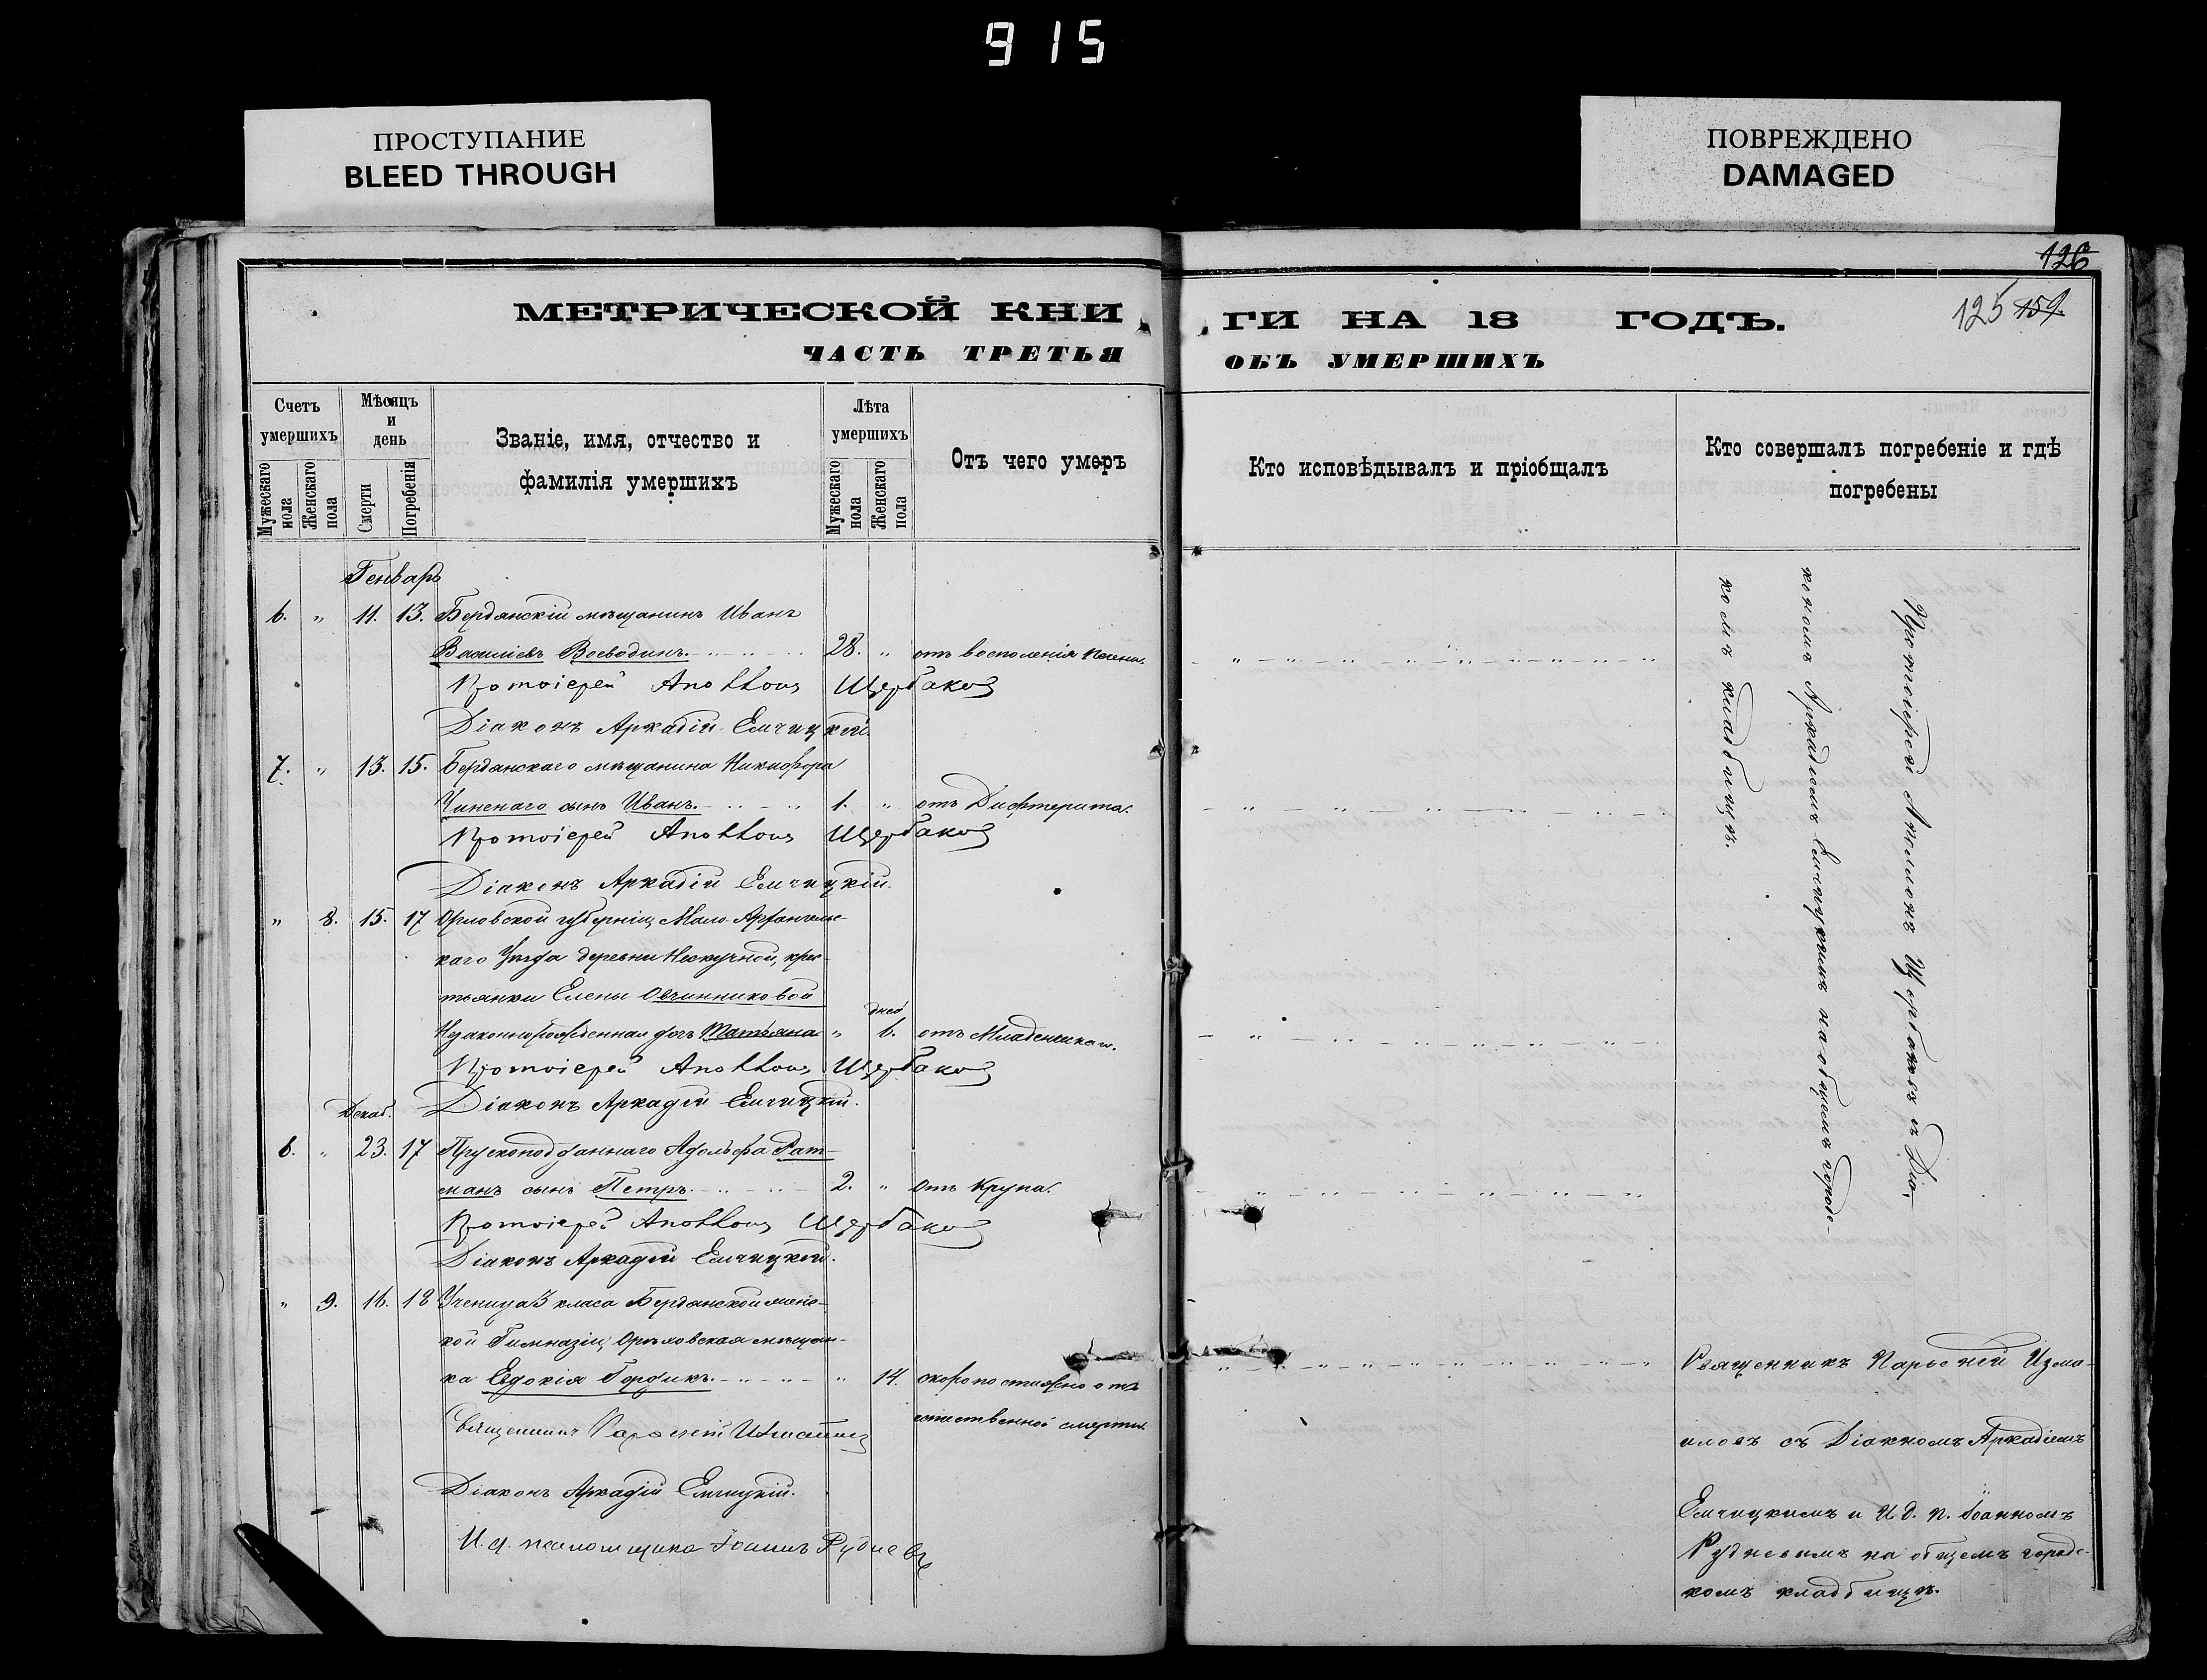 915
ПРОСТУПАНИЕ
BLEED THROUGH
ПОВРЕЖДЕНО
DAMAGED
126
125 159.
МЕТРИЧЕСКОЙ КНИ
ГИ НА 18 ГОДЪ.
ЧАСТЬ ТРЕТЬЯ
ОБЪ УМЕРШИХЪ
Счетъ умершихъ
Мужескаго пола
Женскаго пола
Мѣсяцъ и день
Смерти
Погребенія
Званіе, имя, отчество и
фамилія умершихъ
Лѣта умершихъ
Мужескаго пола
Женскаго пола
Отъ чего умеръ
Кто исповѣдывалъ и пріобщалъ
Кто совершалъ погребеніе и гдѣ
погребены
Генварь
6. " 11. 13. Бердянскій мѣщанинъ Иванъ
Василіевъ Воеводинъ. 28. " отъ восполенія печени.
Протоіерей Аполлонъ Щербаковъ
Діаконъ Аркадій Емчицкій.
7. " 13. 15. Бердянскаго мѣщанина Никифора
сынъ Иванъ. 1. " отъ Дифтерита.
Протоіерей Аполлонъ Щербаковъ
Діаконъ Аркадій Емчицкій.
" 8. 15. 17 Орловской губерніи, Мало-Архангельс-
каго Уѣзда деревни Нескучной, крес-
тьянки Елены Овчинниковой
дней
Незаконнорожденная дочь Татьяна " 6. отъ Младенческаго.
Протоіерей Аполлонъ Щербаковъ
Діаконъ Аркадій Емчицкій.
Декаб.
6. " 23. 17 Прускоподданнаго Адольфа Рат-
манъ сынъ Петръ. 2. " отъ Крупа.
Протоіерей Аполлонъ Щербаковъ
Діаконъ Аркадій Емчицкій.
" 9. 16. 18 Ученица 3 класа Бердянской женс-
кой Гимназіи, Орѣховская мѣщан-
ка Евдокія Гордикъ. " 14. скоропостижно отъ
естественной смерти
Священникъ Парѳеній Измаиловъ
Діаконъ Аркадій Емчицкій.
И. д. псаломщика Іоаннъ Рудневъ
Протоіерей Аполлонъ Щербаковъ съ Діа-
кономъ Аркадіемъ Емчицкимъ на общемъ городс-
комъ кладбищѣ.
Священникъ Парѳеній Изма-
иловъ съ Діакономъ Аркадіемъ
Емчицкимъ и И. д. п. Іоанномъ
Рудневымъ на общемъ городс-
комъ кладбищѣ.